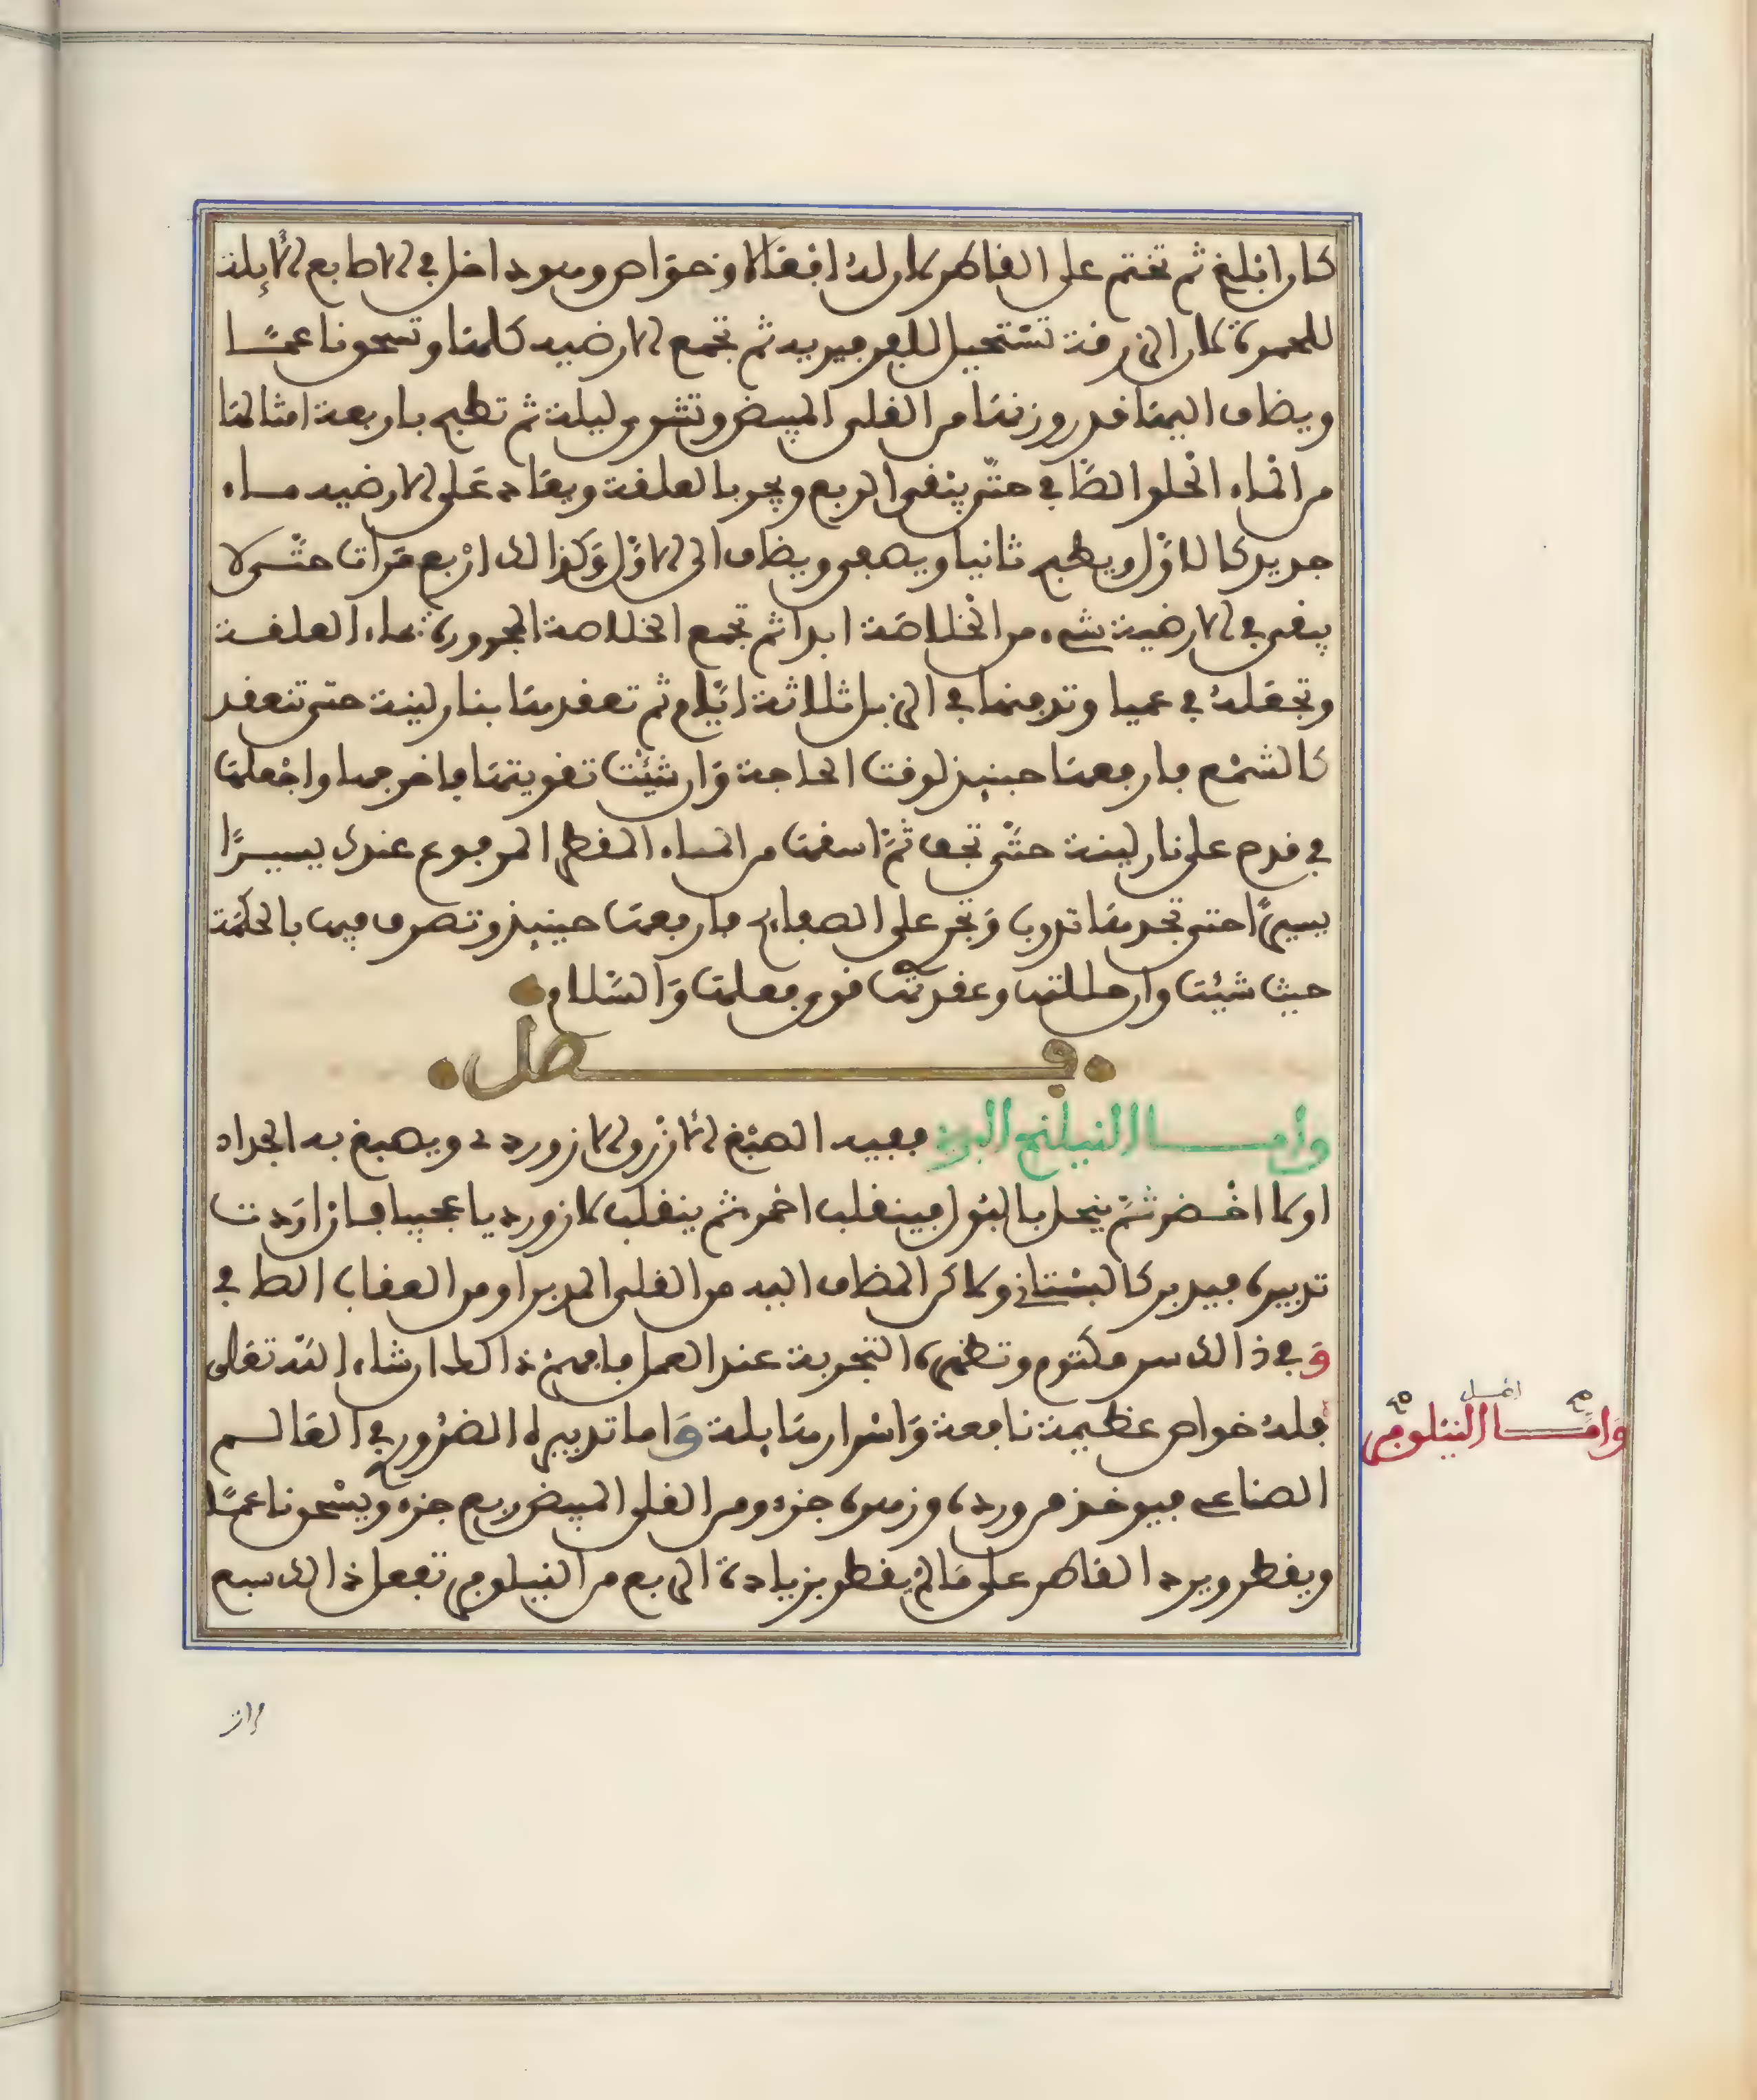 كان ابلغ ثم تختم على القاطر لان له افعالا وخواص وهو داخل في الاصابع الآيلة
للحمرة لان الزرقة تستحيل للفرفيرية ثم تجمع الارضية كلها وتسحق ناعما
ويضاف اليها قدر وزنها من القلي المبيض وتشوى ليلة ثم تطبخ باربعة امثالها
من الماء الحلو الصافي حتى يبقى الربع ويجر بالعلقة ويعاد على الارضية ماء
جديد كالاول ويطبخ ثانيا ويصفى ويضاف الى الاول وكذالك اربع مرات حتى لا
يبقى في الارضية شيء من الخلاصة ابدا ثم تجمع الخلاصة المجرورة بماء العلقة
وتجعله في عميا وتدفنها في الزبل ثلاثة ايام ثم تعقدها بنار لينة حتى تنعقد
كالشمع فارفعها حينئذ لوقت الحاجة وان شئت تقويتها فاخرجها واجعلها
في قدح على نار لينة حتى تجف ثم اسقها من الماء المقطر المرفوع عندك يسيرا
يسيرا حتى تجدها تذوب وتجر على الصفايح فارفعها حينئذ وتصرف فيها بالحكمة
حيث شئت وان حللتها وعقدتها قوي فعلها والسلام
فصل
وامـــا النيلنج البري ففيه الصبغ الازرق الازوردي ويصبغ به الجراد
اولا اخضر ثم ينحل بالبول فينقلب احمر ثم ينقلب لازورديا عجيبا فاذا اردت
تدبيره فيدبر كالبستاني ولاكن المضاف اليه من القلي المدبر او من العقاب الصافي
وفي ذالك سر مكتوم وتظهره التجربة عند العمل فافهم ذالك ان شاء الله تعالى
فله خواص عظيمة نافعة واسرار هايلة واما تدبيره الضروري في العالم
الصناعي فيوخذ من ورده وزهره جزء ومن القلي المبيض ربع جزء ويسحق ناعما
ويقطر ويرد القاطر على ما لم يقطر بزيادة الربع من النيلوفر تفعل ذالك سبع
وامـــا النيلوفر
اصل
صح
صح
مرات